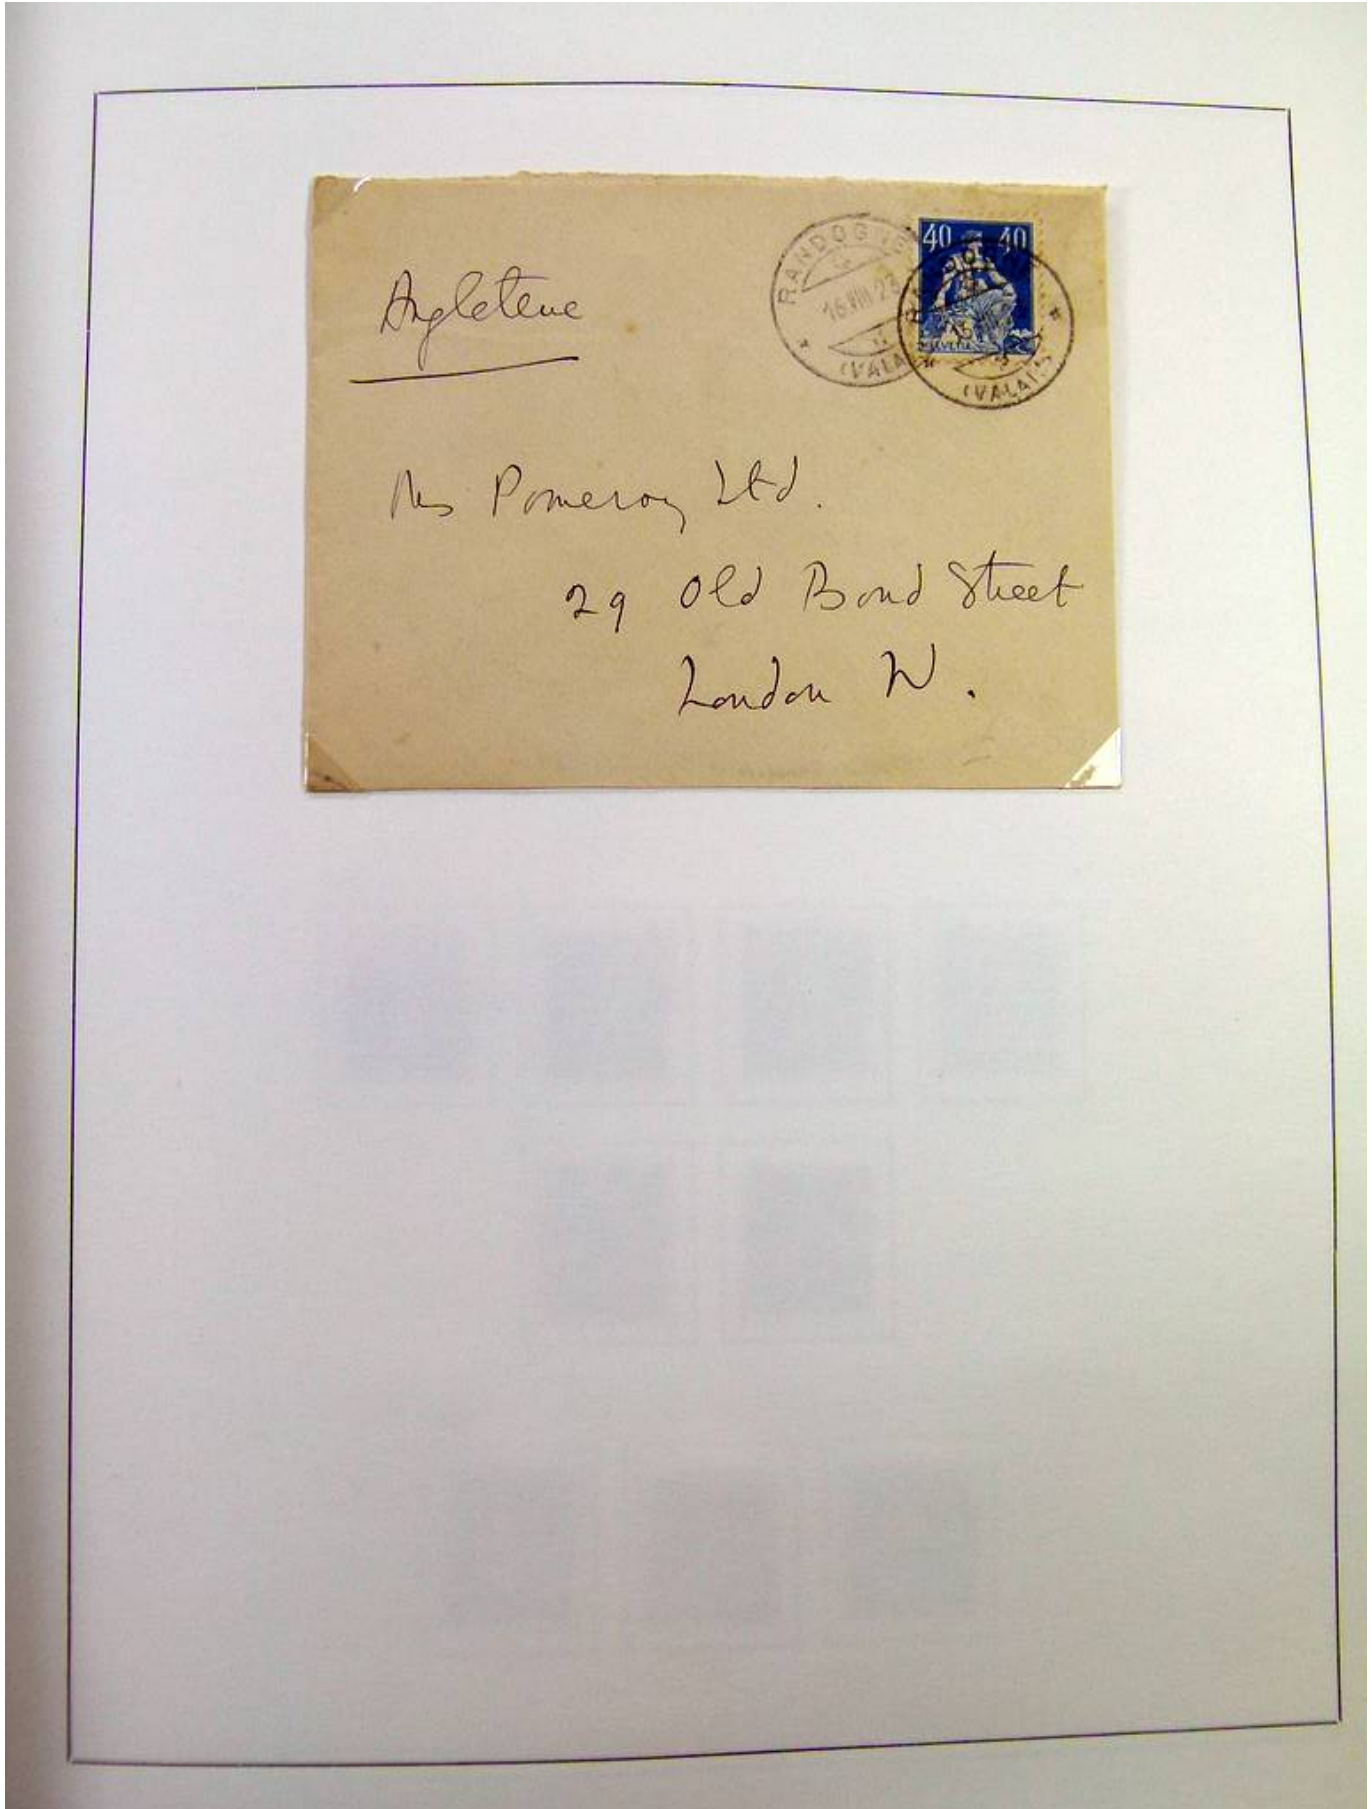 Angleterre
RANDOGNE
16 VIII 23
(VALA
40 40
HELVETIA
(VALAIS)
Ms Pomeroy Ltd.
29 Old Bond Street
London W.